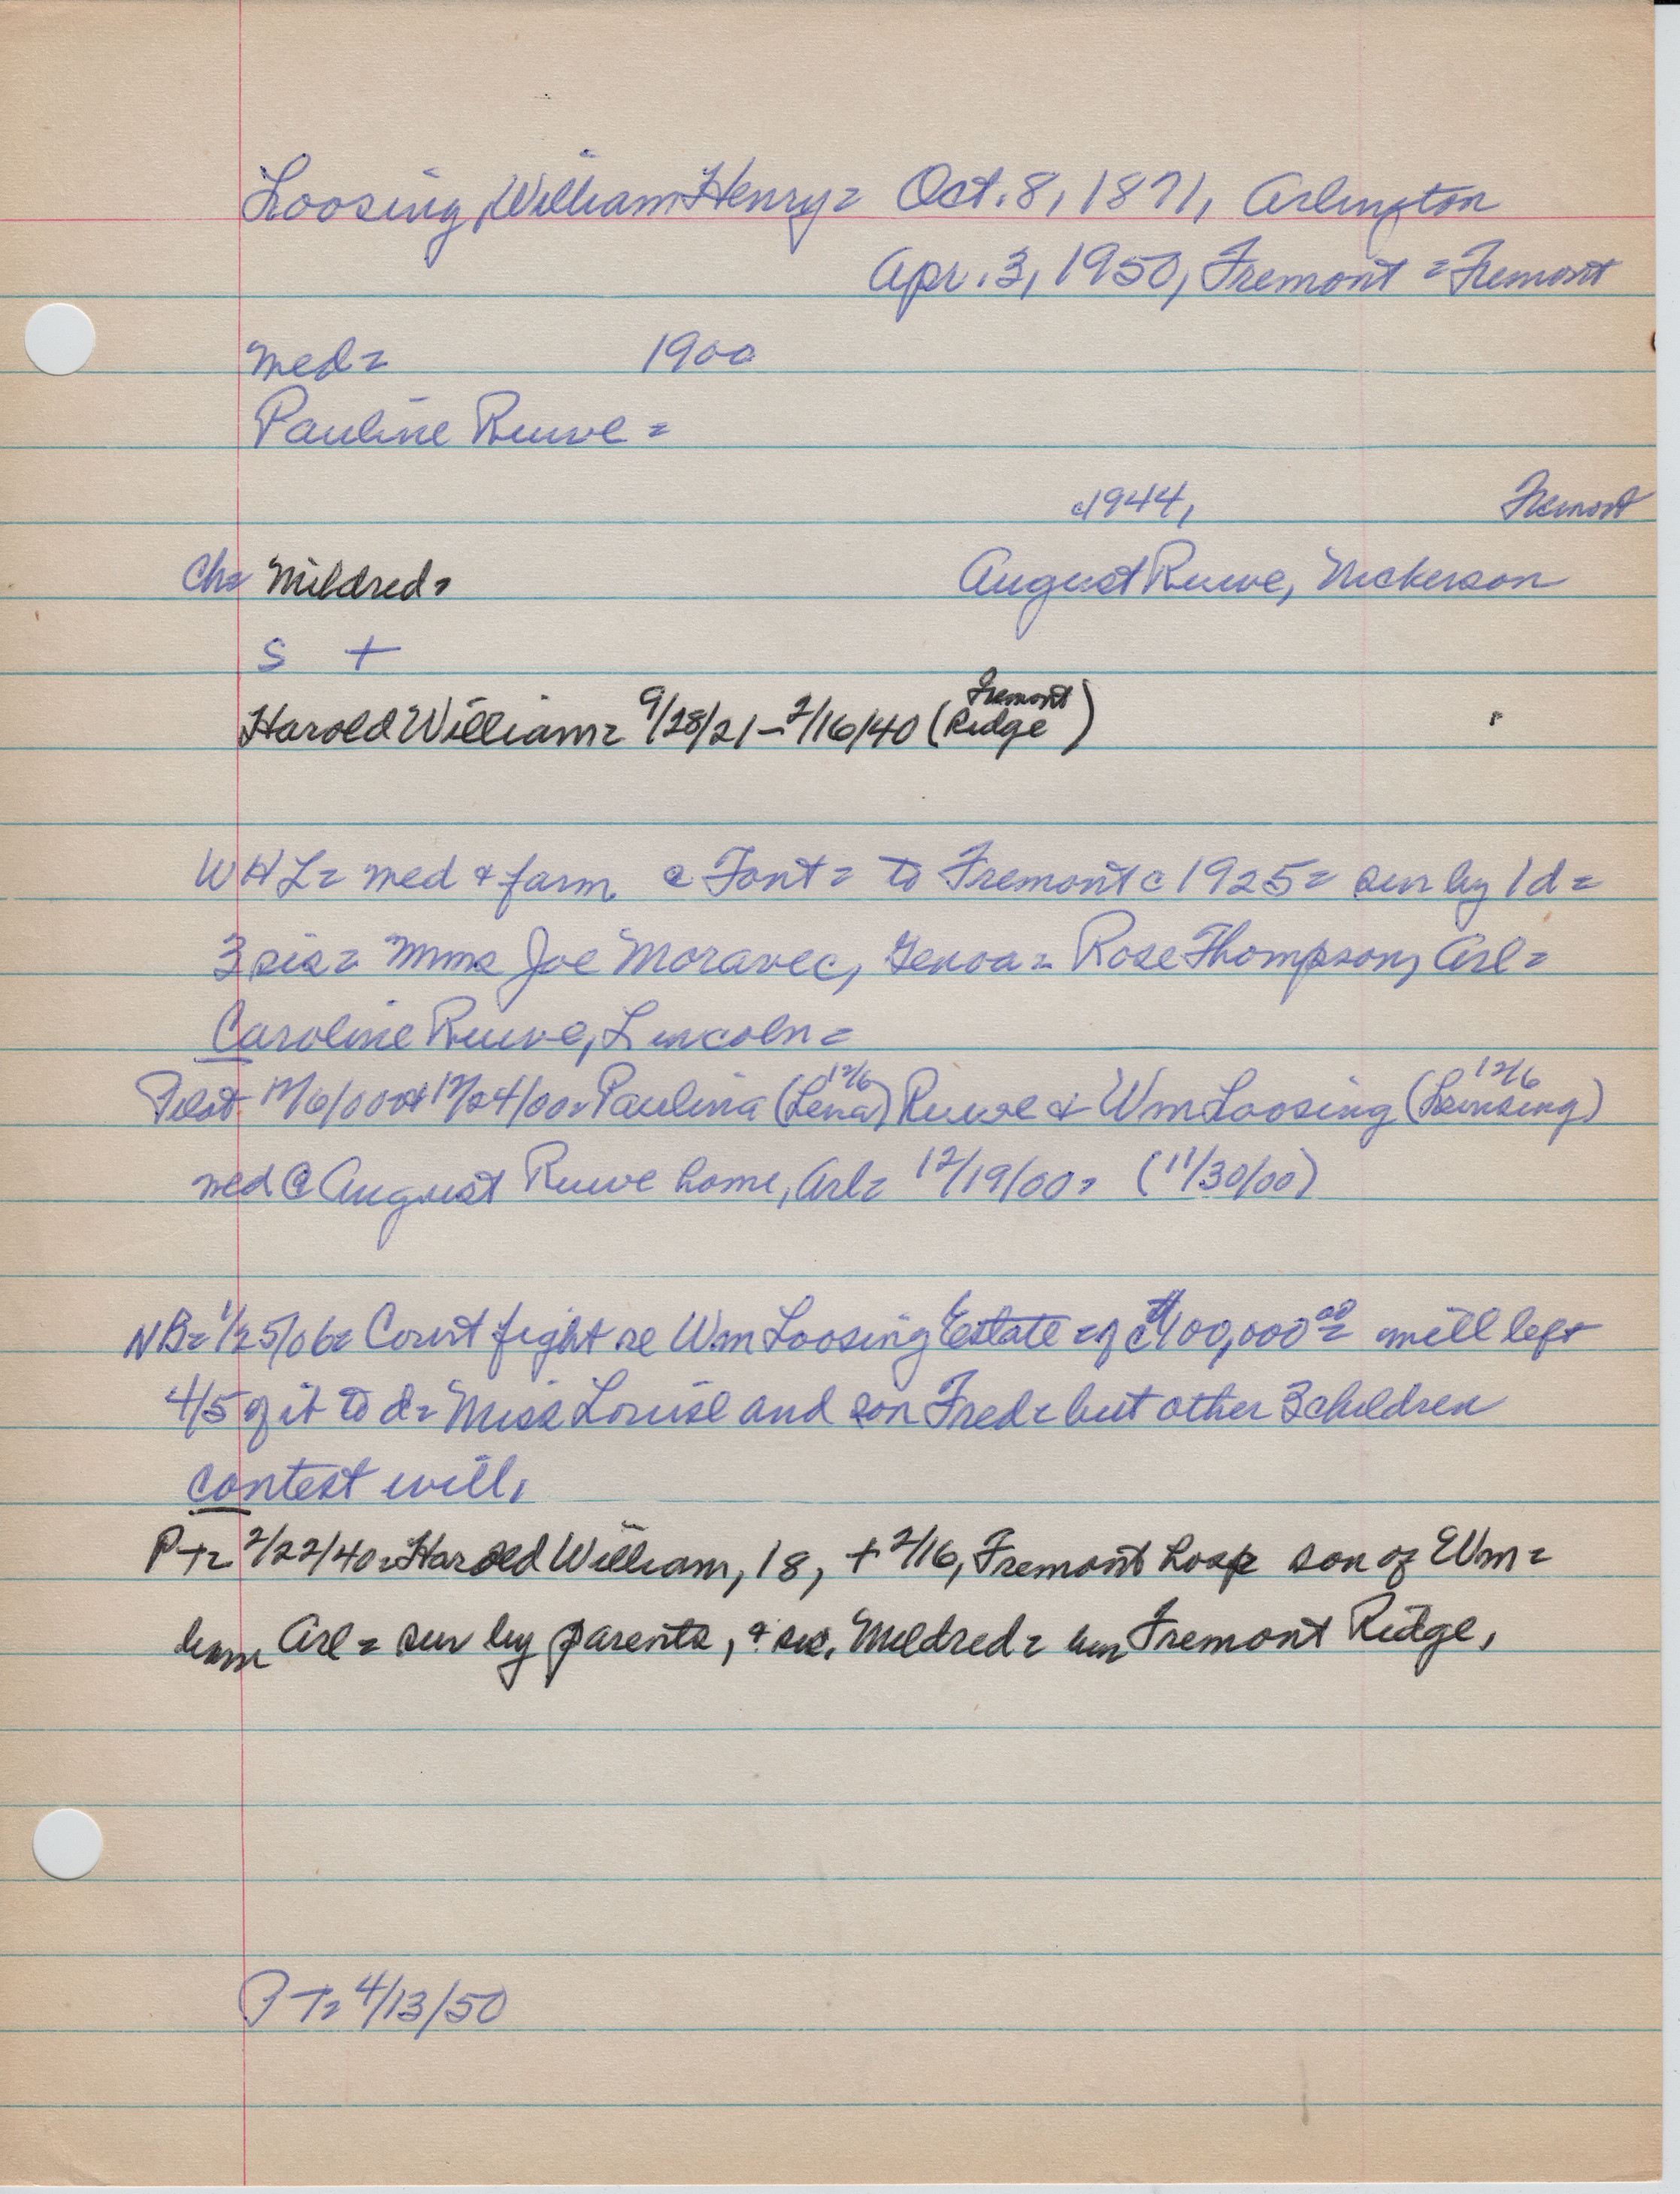 Loosing, William Henry = Oct. 8, 1871, Arlington
Apr. 3, 1950, Fremont = Fremont
med = 1900
Pauline Ruwe =
c1944, Fremont
Ch = Mildred = August Ruwe, Nickerson
S +
Harold William = 9/28/21 - 2/16/40 (Fremont Ridge)
WHL = med & farm @ Font = to Fremont c 1925 = sur by 1 d =
3 sis = Mmes Joe Moravec, Genoa = Rose Thompson, Arl =
Caroline Ruwe, Lincoln =
12/6/00 & 12/24/00 = Paulina (Lena 12/6) Ruwe & Wm Loosing (12/6)
med @ August Ruwe home, Arl = 12/19/00 = (11/30/00)
NB = 1/25/06 = Court fight re Wm Loosing Estate = of c$100,000.00 = will left
4/5 of it to d = Miss Louise and son Fred = but other 3 children
contest will.
PT = 2/22/40 = Harold William, 18, + 2/16, Fremont hosp son of Wm =
born Arl = sur by parents, & sis. Mildred = bur Fremont Ridge.
PT = 4/13/50